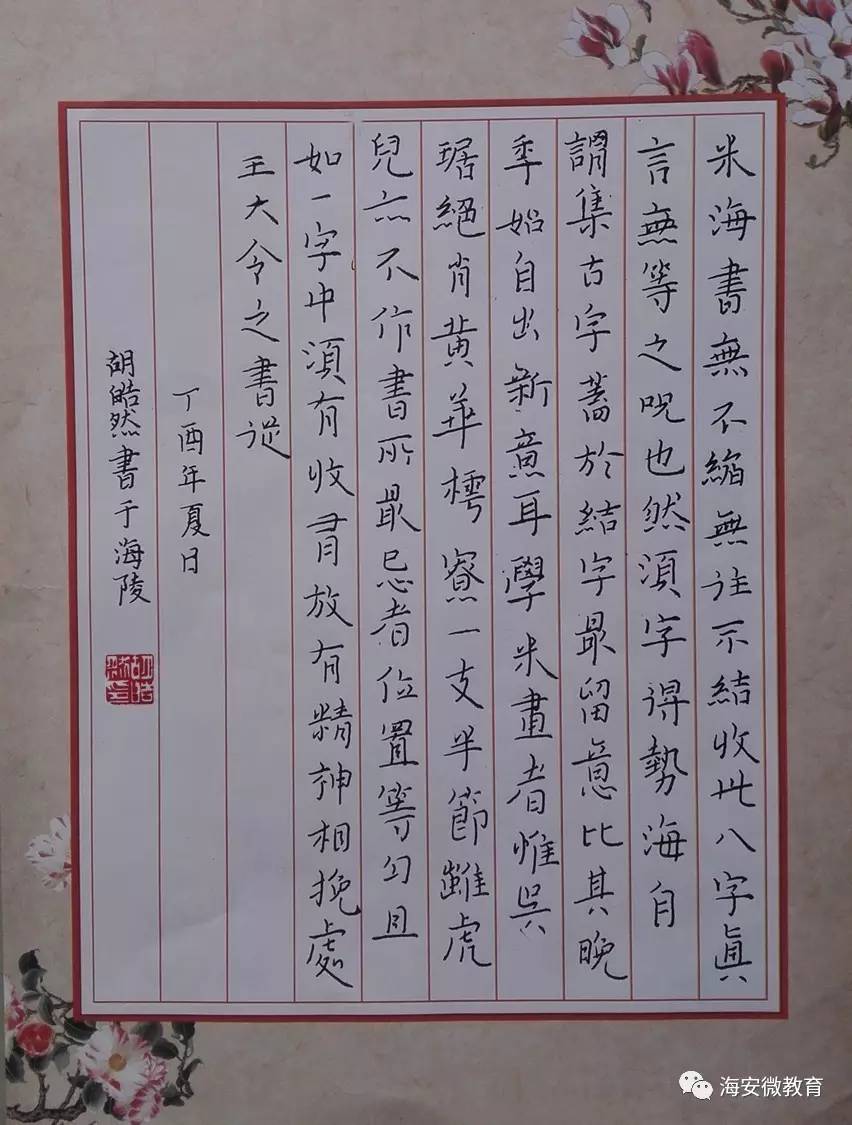 米海書無不縮無往不結收此八字眞
言無等之呪也然須字得勢海自
謂集古字蓄於結字最留意比其晚
秊始自出新意耳學米畫者惟吳
琚絕肖黃華樗寮一支半節雖虎
兒亦不作書所最忌者位置等勻且
如一字中須有收有放有精神相挽處
王大令之書從
丁酉年夏日
胡皓然書于海陵
海安微教育